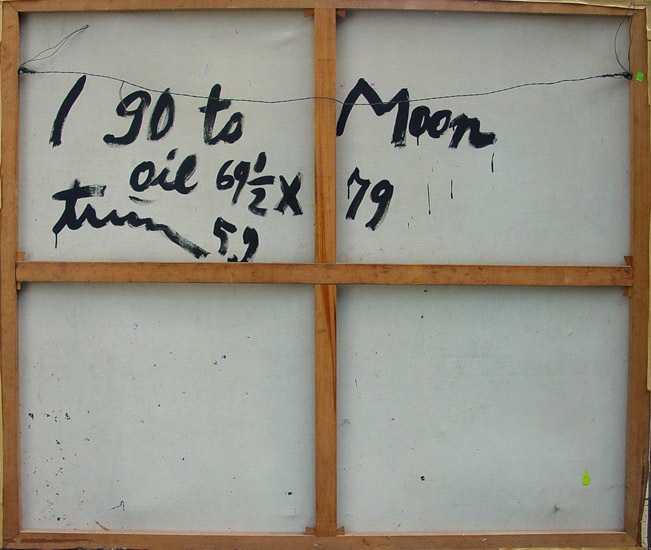 I go to Moon
oil 69½ X 79
59